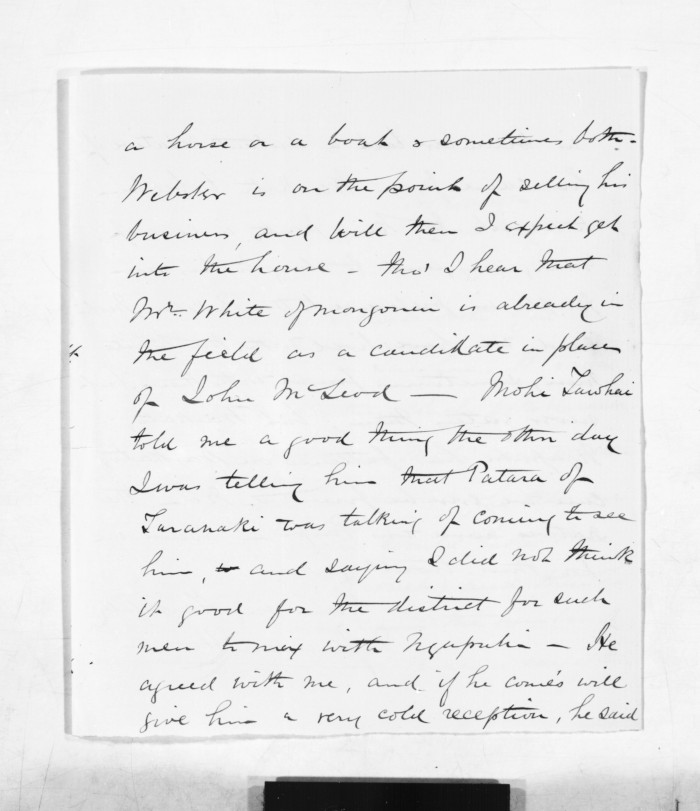 a horse or a boat & sometimes both -
Webster is on the point of selling his
business, and will then I expect get
into the house - tho' I hear that
Mr. White of Mongonui is already in
the field as a candidate in place
of John McLeod — Mohi Tawhai
told me a good thing the other day
I was telling him that Patara of
Taranaki was talking of coming to see
him, and saying I did not think
it good for the district for such
men to mix with Ngapuhi - He
agreed with me, and if he comes will
give him a very cold reception, he said